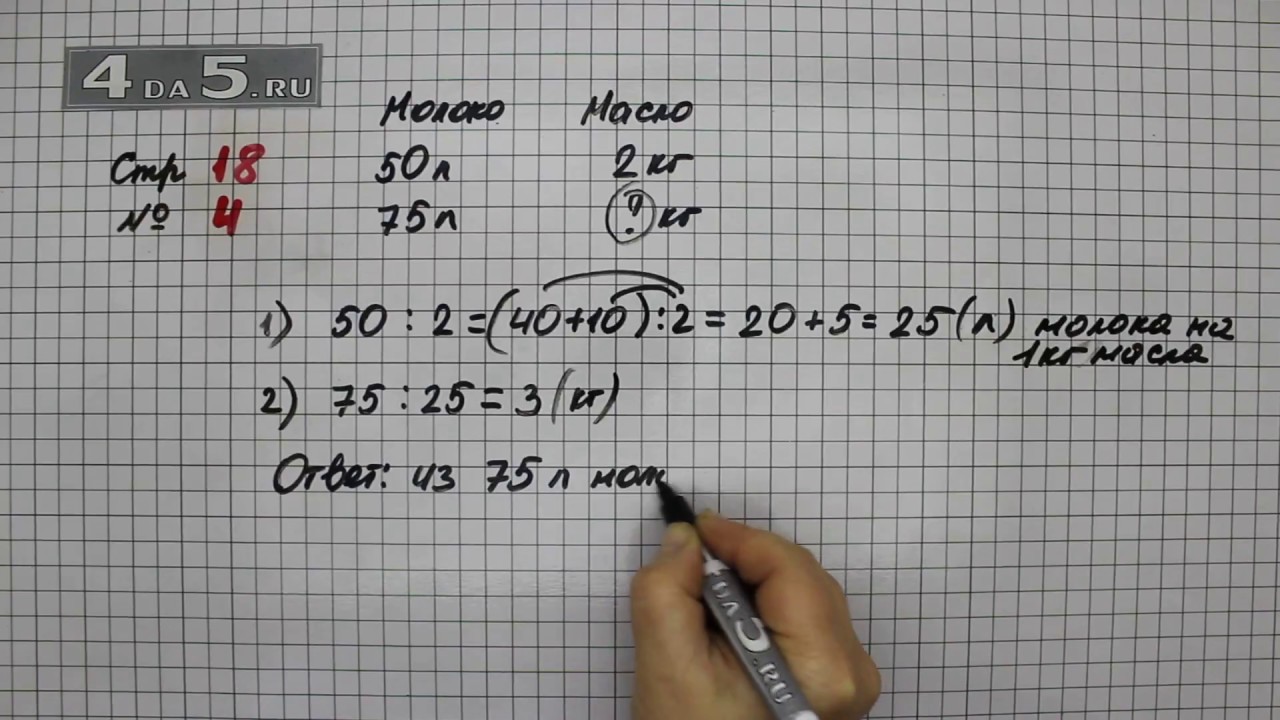 4DA5.RU
Молоко Масло
Стр 18 50л 2 кг
№ 4 75л ? кг
1) 50 : 2 = (40+10) : 2 = 20 + 5 = 25 (л) молока на
1кг масла
2) 75 : 25 = 3 (кг)
Ответ: из 75 л мол
DA5.RU